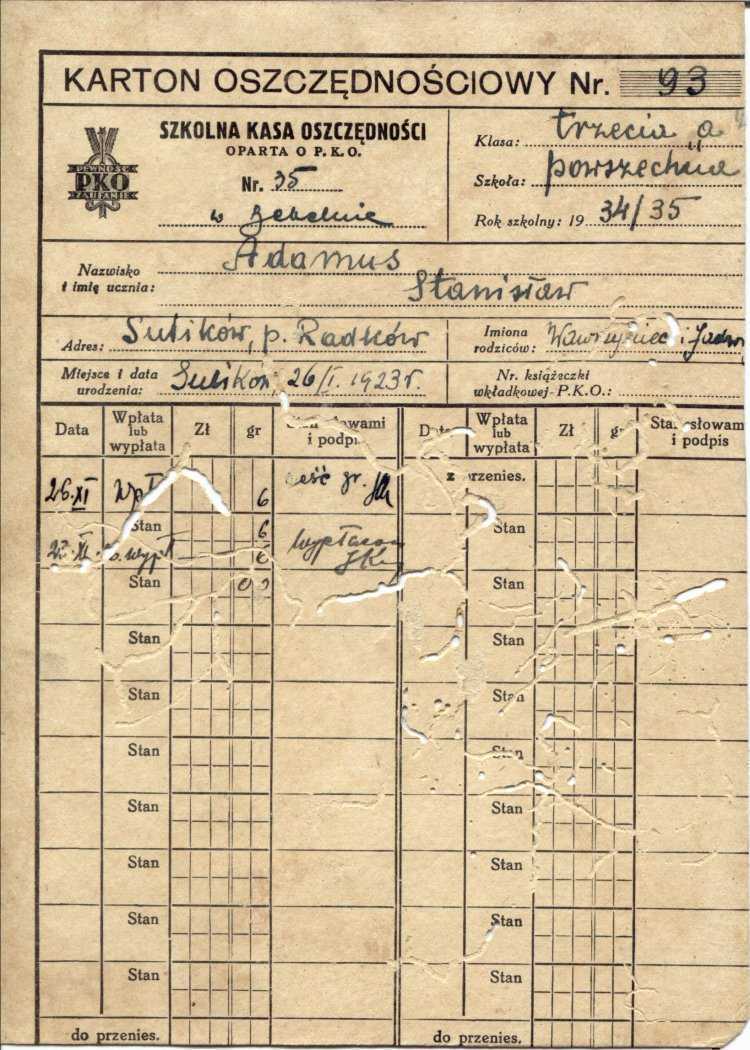 KARTON OSZCZĘDNOŚCIOWY Nr. 93
PEWNOŚĆ
PKO
ZAUFANIE
SZKOLNA KASA OSZCZĘDNOŚCI
OPARTA O P. K. O.
Nr. 35
w
Klasa: trzecia a
Szkoła: powszechna
Rok szkolny: 19 34/35
Nazwisko i imię ucznia: Adamus
Stanisław
Adres: Sulików, p. Radków
Imiona rodziców: Wawrzyniec i
Miejsce i data urodzenia: Sulików, 26/I. 1923 r.
Nr. książeczki wkładkowej P.K.O.:
Data Wpłata lub wypłata Zł gr i podpis Wpłata lub wypłata Zł gr i podpis
26.XI 6 sześć gr. z przenies.
Stan 6 Stan
wypł 6
Stan 00 Stan
Stan Stan
Stan Stan
Stan Stan
Stan Stan
Stan Stan
Stan Stan
Stan
do przenies. do przenies.